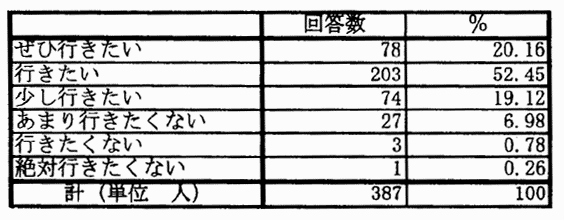 回答数 %
ぜひ行きたい 78 20.16
行きたい 203 52.45
少し行きたい 74 19.12
あまり行きたくない 27 6.98
行きたくない 3 0.78
絶対行きたくない 1 0.26
計（単位　人） 387 100